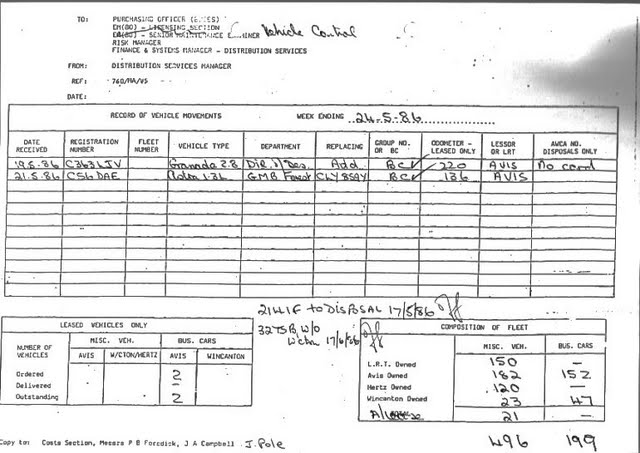 TO: PURCHASING OFFICER (BUSES)
EM(BO) - LICENSING SECTION
EM(BO) - SENIOR MAINTENANCE Vehicle Control
RISK MANAGER
FINANCE & SYSTEMS MANAGER - DISTRIBUTION SERVICES
FROM: DISTRIBUTION SERVICES MANAGER
REF: 760/MA/VS
DATE:
RECORD OF VEHICLE MOVEMENTS WEEK ENDING 24.5.86
DATE RECEIVED REGISTRATION NUMBER FLEET NUMBER VEHICLE TYPE DEPARTMENT REPLACING GROUP NO. OR BC ODOMETER - LEASED ONLY LESSOR OR LRT AWCA NO. DISPOSALS ONLY
19.5.86 C363LJV Granada 2.8 Dir. Des. Add. BC ✓ 220 AVIS No card
21.5.86 C56 DAE 1.3L GMB Forest CLY 885Y BC ✓ 136 AVIS
2141F TO DISPOSAL 17/5/86
327SB W/O 17/6/86
LEASED VEHICLES ONLY
NUMBER OF VEHICLES MISC. VEH. BUS. CARS
AVIS W/CTON/HERTZ AVIS WINCANTON
Ordered 2
Delivered -
Outstanding 2
COMPOSITION OF FLEET
MISC. VEH. BUS. CARS
L.R.T. Owned 150 -
Avis Owned 182 152
Hertz Owned 120 -
Wincanton Owned 23 47
21 -
496 199
Copy to: Costs Section, Messrs P B Forsdick, J A Campbell J. Pole